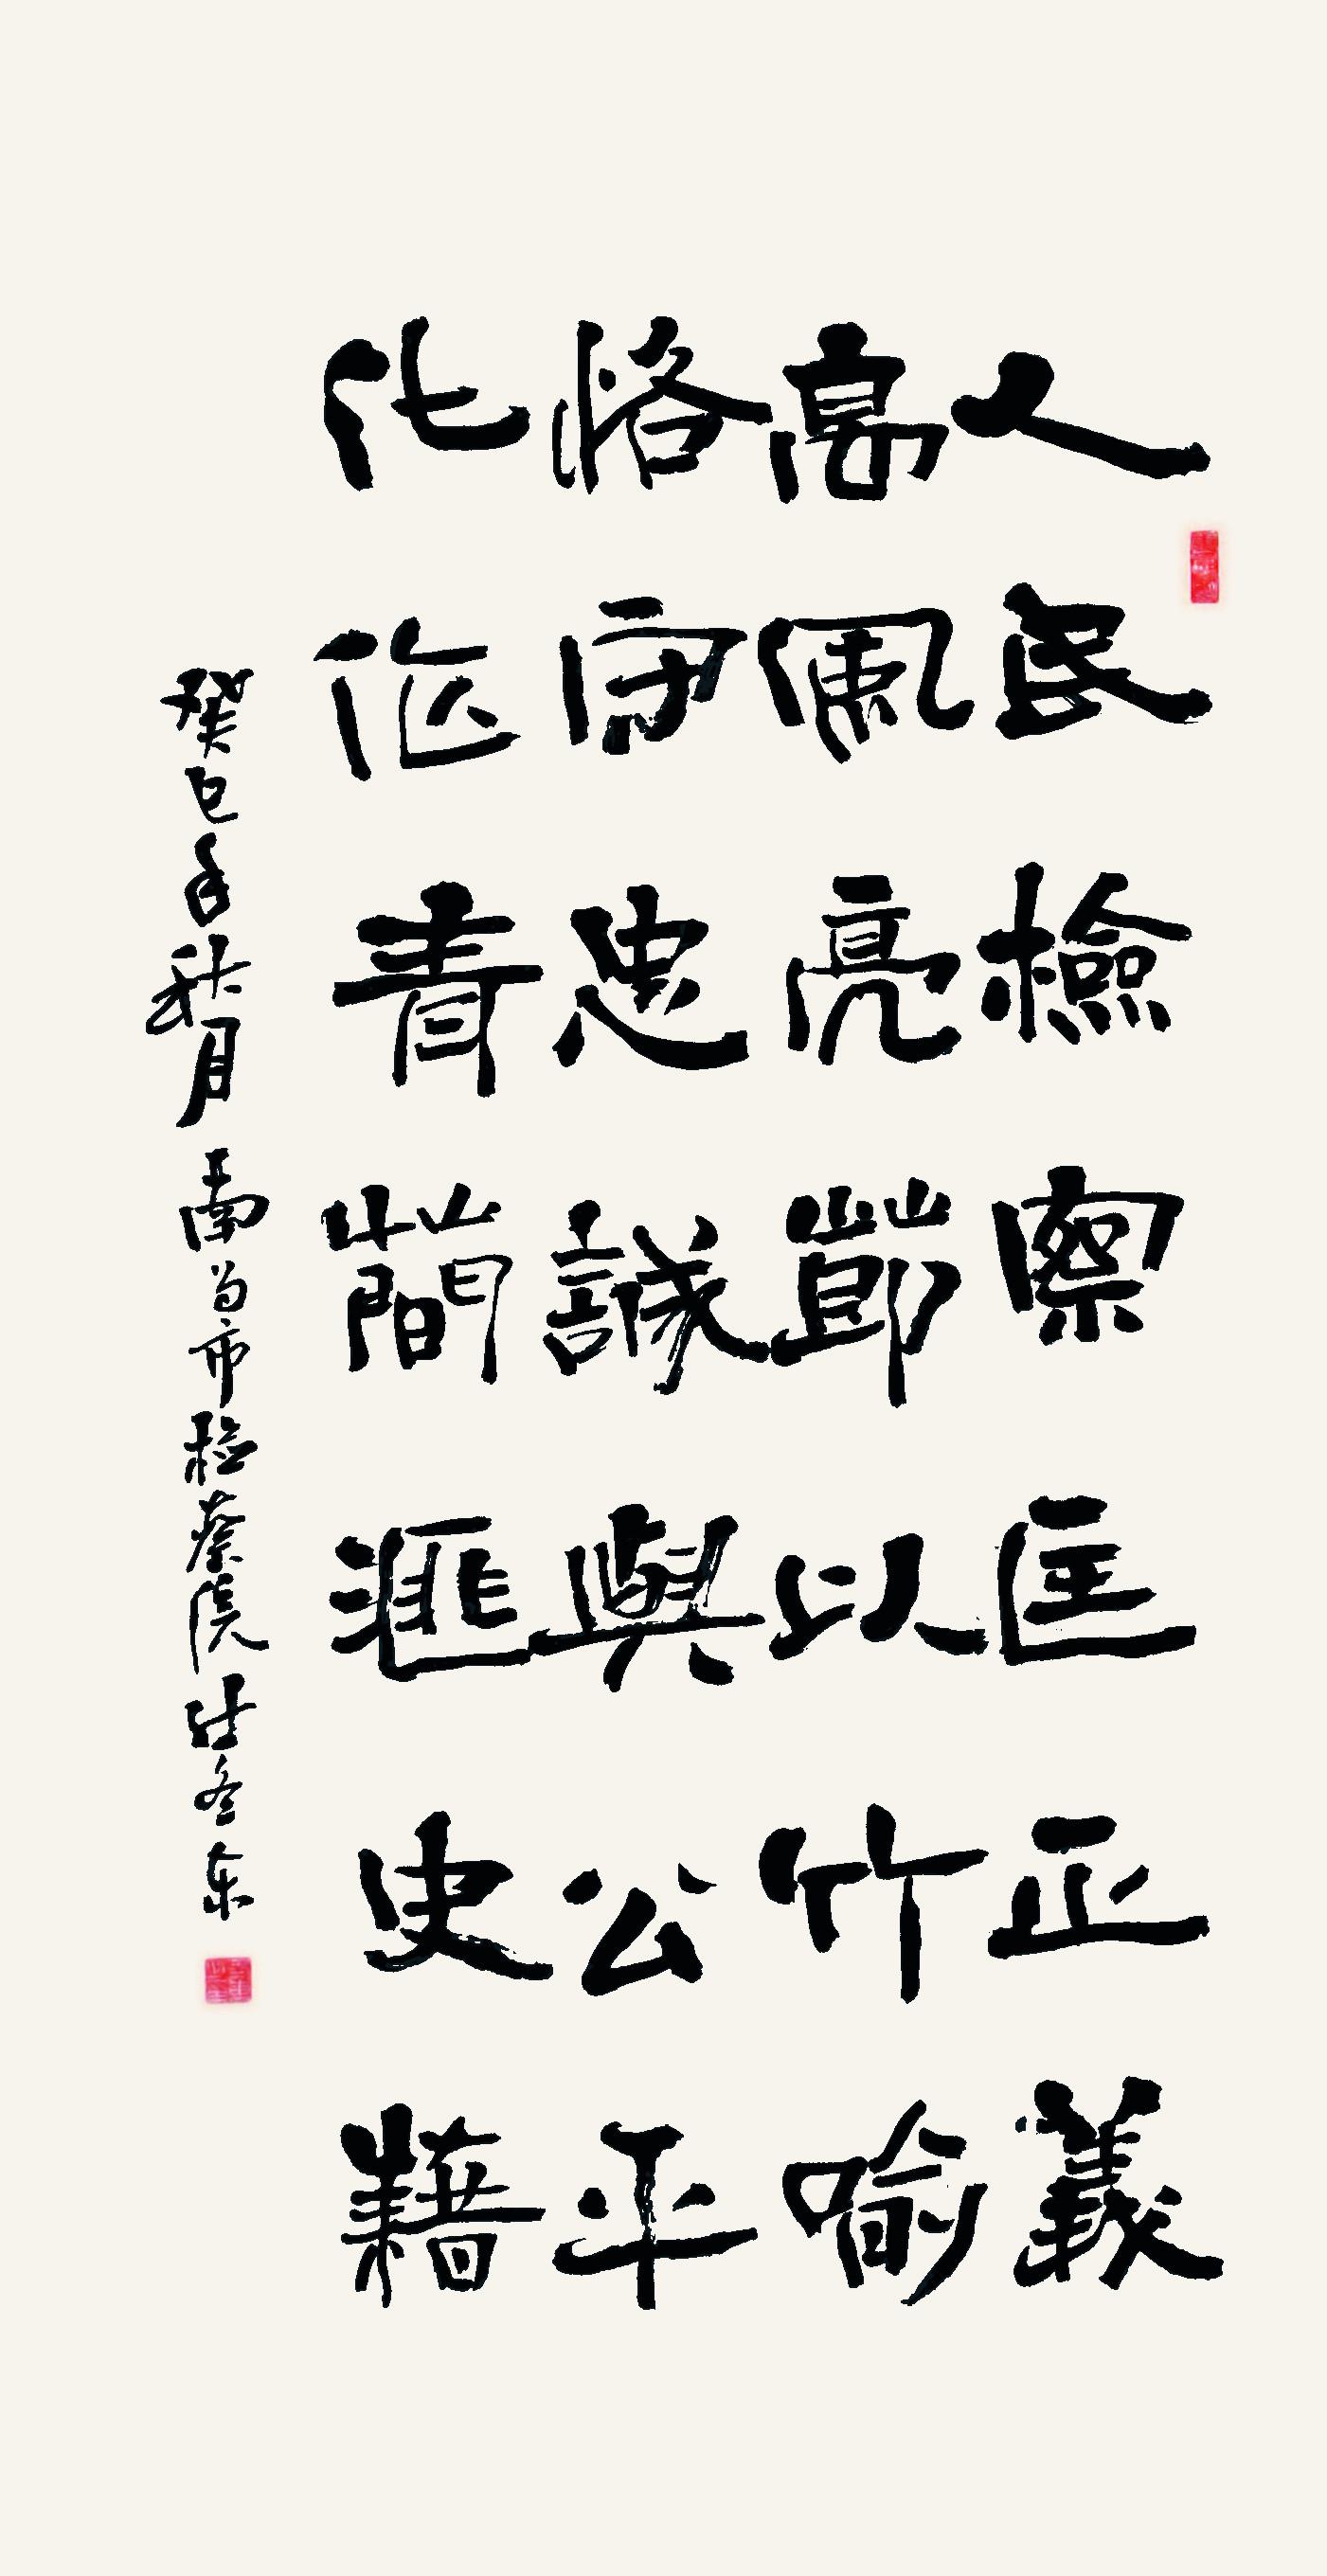 人民檢察匡正義
高風亮節以竹喻
恪守忠誠與公平
化作青簡匯史藉
癸巳年秋月 南昌市檢察院 冬东